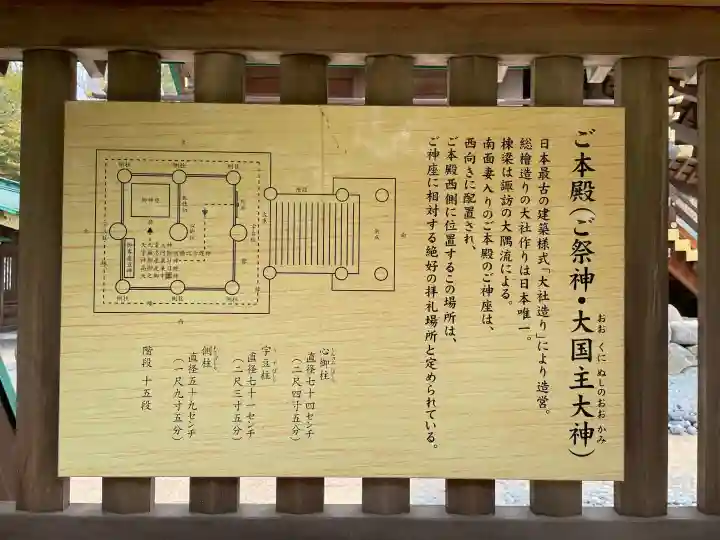 ご本殿(ご祭神・大国主大神)
おお くに ぬしのおお かみ
日本最古の建築様式「大社造り」により造営。
総檜造りの大社作りは日本唯一。
棟梁は諏訪の大隅流による。
南面妻入りのご本殿のご神座は、
西向きに配置され、
ご本殿西側に位置するこの場所は、
ご神座に相対する絶好の拝礼場所と定められている。
心御柱
直径七十四センチ
(二尺四寸五分)
宇豆柱
直径七十一センチ
(二尺三寸五分)
側柱
直径五十九センチ
(一尺九寸五分)
階段 十五段
側柱
側柱
側柱
御神座
階段
側柱
側柱
側柱